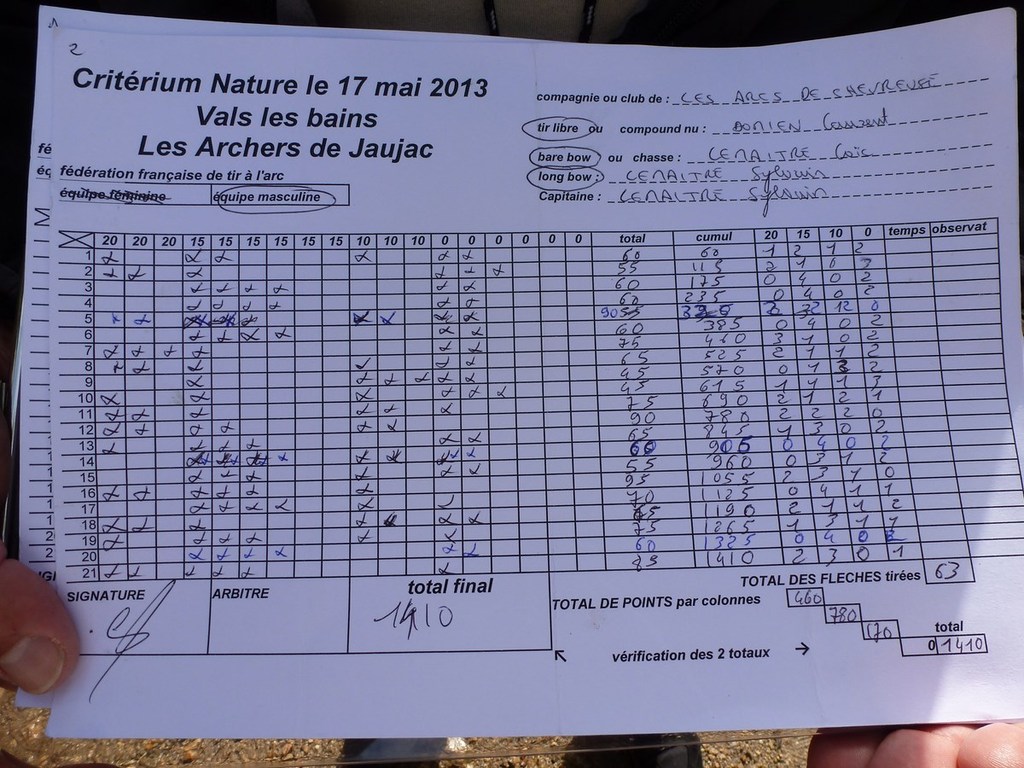 2
Critérium Nature le 17 mai 2013
Vals les bains
Les Archers de Jaujac
fédération française de tir à l'arc
équipe féminine équipe masculine
compagnie ou club de : LES ARCS DE CHEVREUSE
tir libre ou compound nu : DOMIEN Laurent
bare bow ou chasse : LEMAITRE Loïc
long bow : LEMAITRE Sylvain
Capitaine : LEMAITRE Sylvain
20 20 20 15 15 15 15 15 15 10 10 10 0 0 0 0 0 0 total cumul 20 15 10 0 temps observat
1 60 60 1 2 1 2
2 55 115 2 1 0 3
3 60 175 0 4 0 2
4 60 235 0 4 0 2
5 90
6 60 385 0 4 0 2
7 75 460 3 1 0 2
8 65 525 2 1 1 2
9 45 570 0 1 3 2
10 45 615 1 1 1 3
11 75 690 2 1 2 1
12 90 780 2 2 2 0
13 65 845 1 3 0 2
14 60 905 0 4 0 2
15 55 960 0 3 1 2
16 95 1055 2 3 1 0
17 70 1125 0 4 1 1
18 1190 2 1 1 2
19 75 1265 1 3 1 1
20 60 1325 0 4 0 2
21 85 1410 2 3 0 1
TOTAL DES FLECHES tirées 63
SIGNATURE ARBITRE total final
1410
TOTAL DE POINTS par colonnes 460 780 170 total
vérification des 2 totaux 0 1410